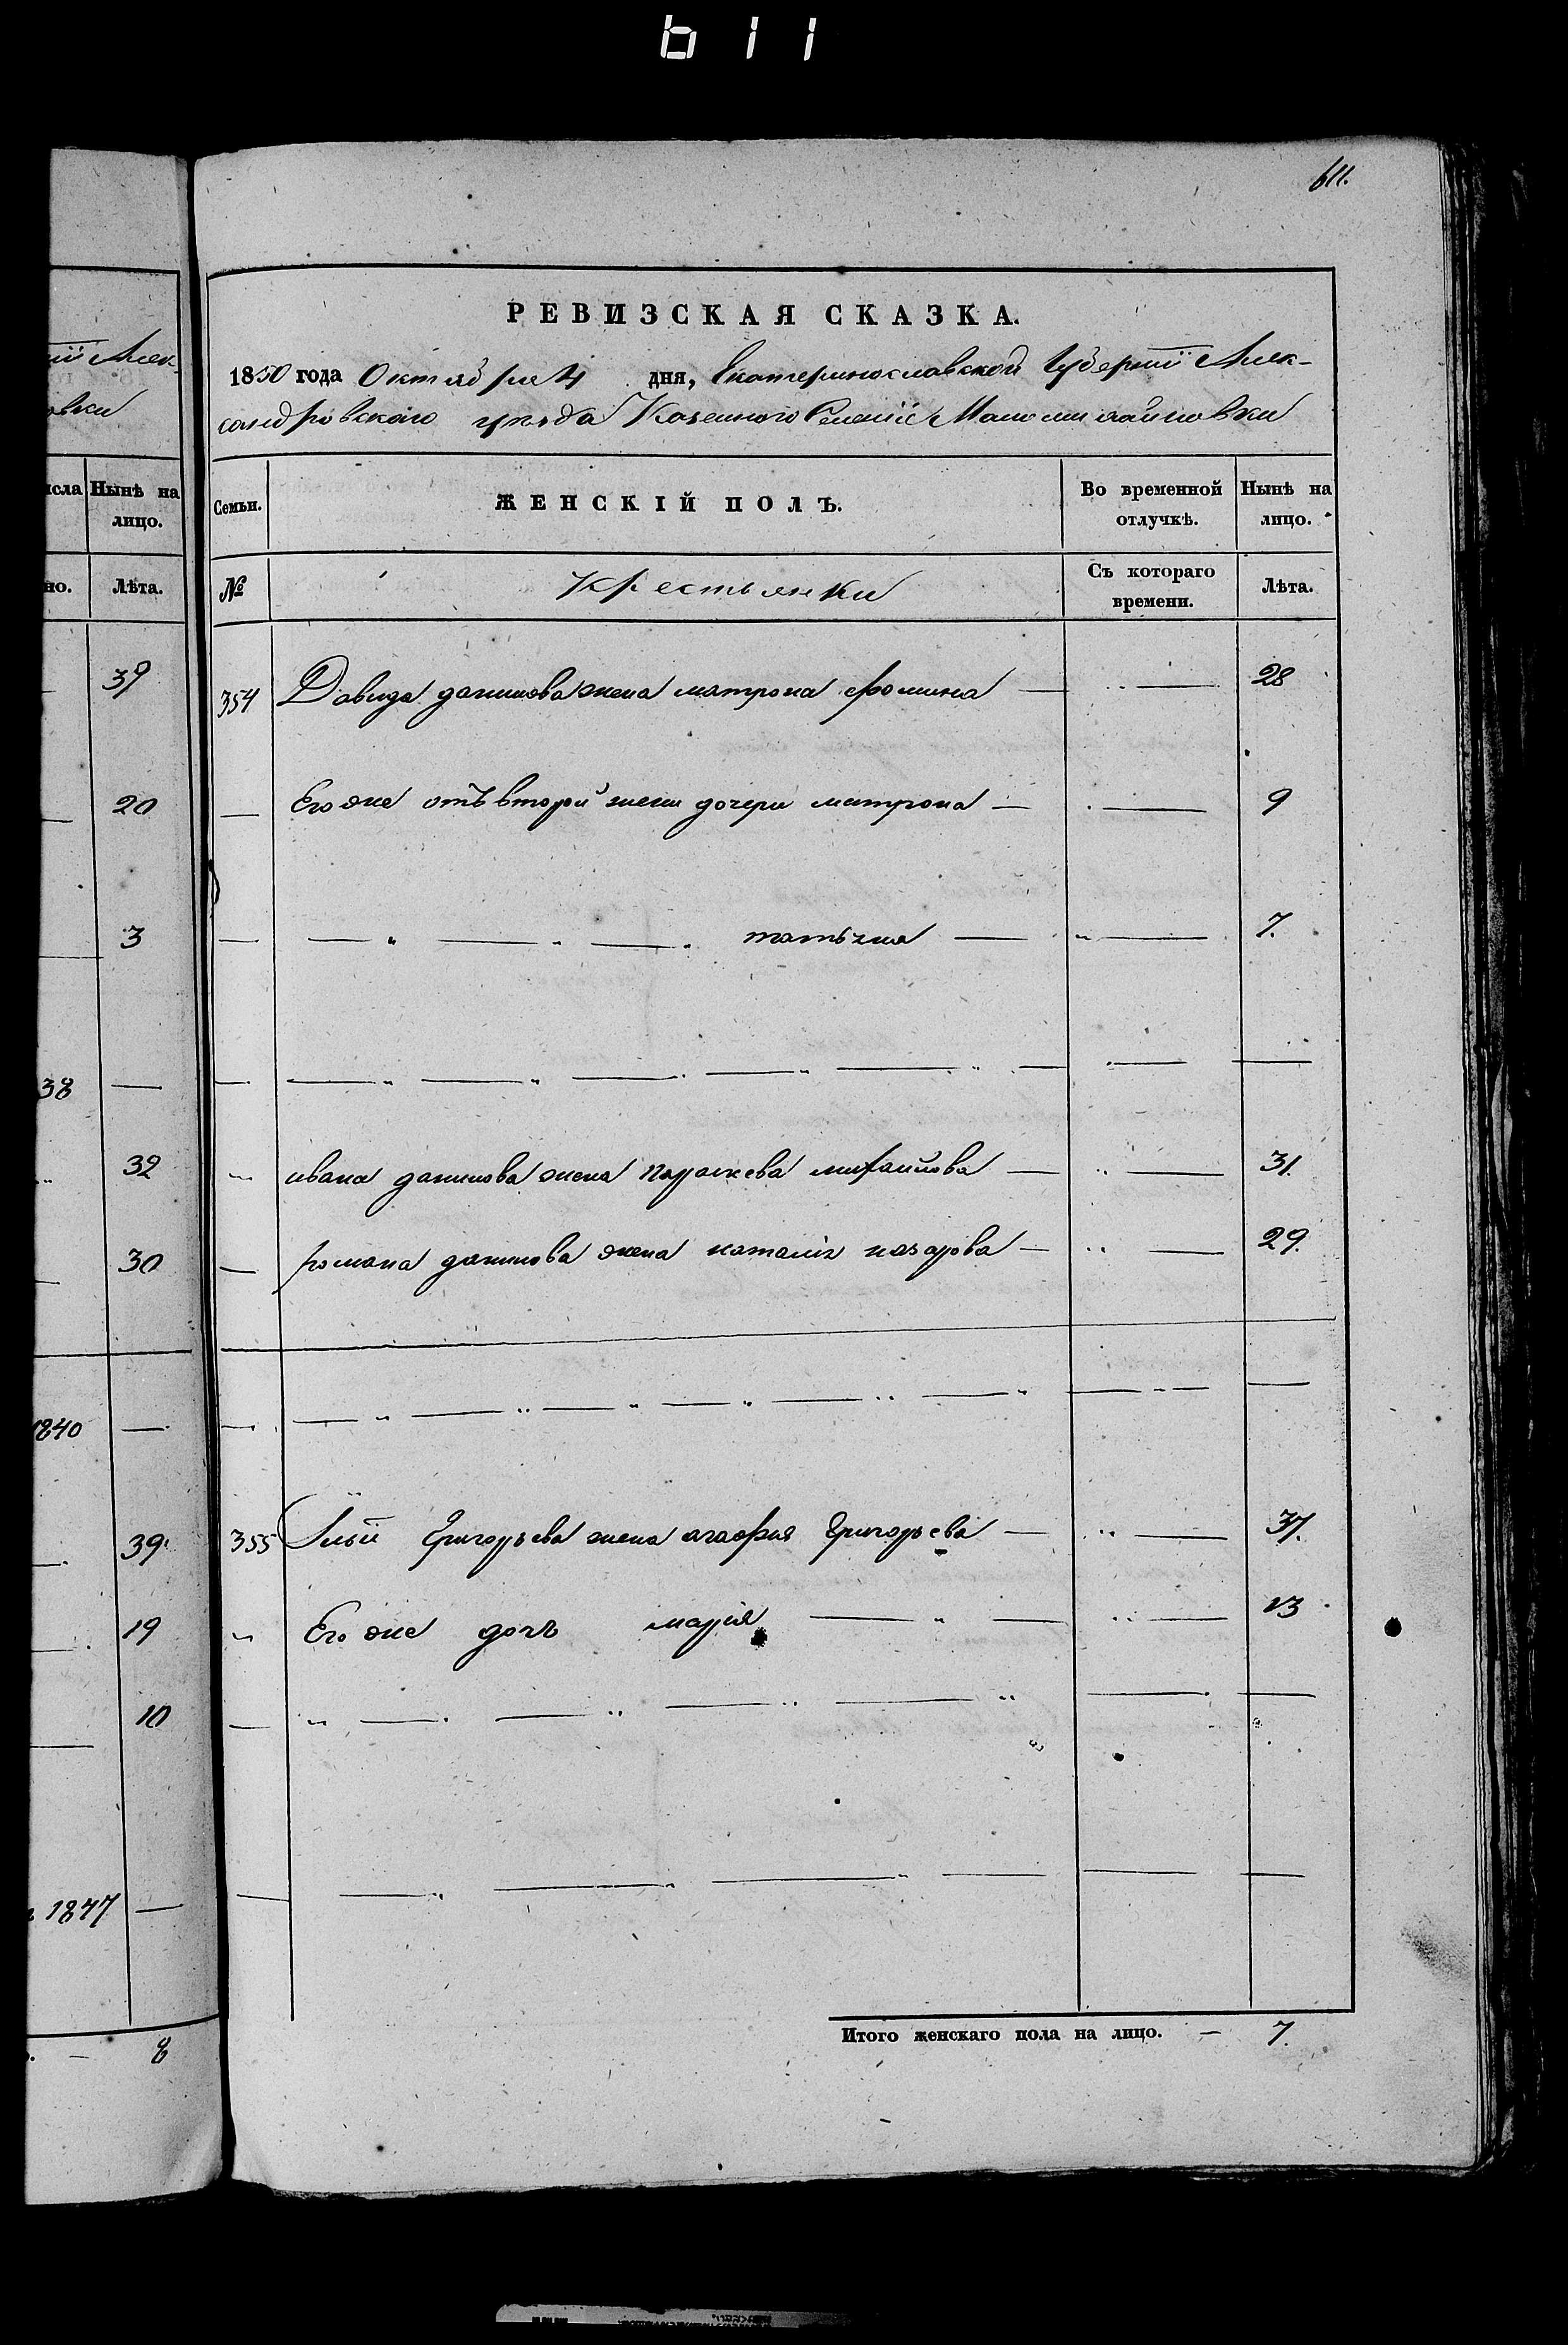 611
611.
ій Алек-
овки
исла Нынѣ на
лицо.
но. Лѣта.
39
20
3
38 —
32
30
1840 —
39
19
10
1847 —
— 8
РЕВИЗСКАЯ СКАЗКА.
1850 года Октября 4 дня, Екатеринославской Губерніи Алек-
сандровского уезда Казенного Селенія Маломихайловки
Семьи. ЖЕНСКІЙ ПОЛЪ. Во временной отлучкѣ. Нынѣ на лицо.
№ Крестьянки Съ котораго времени. Лѣта.
354 Давида данилова жена матрона фомина — — 28
— Его же отъ второй жены дочери матрона — — 9
— — " — " — " татьяна — — 7.
— — " — " — " — " — " — — —
" ивана данилова жена параскева михайлова — — 31.
— романа данилова жена наталія назарова — — 29.
— — " — " — " — " — " — " — " — —
355 Ильи Григорьева жена агафия Григорьева — — 37.
" Его же дочь марія — " — — 13
— " — " — " — " — " — —
— — " — " — " — — —
Итого женскаго пола на лицо. — 7.